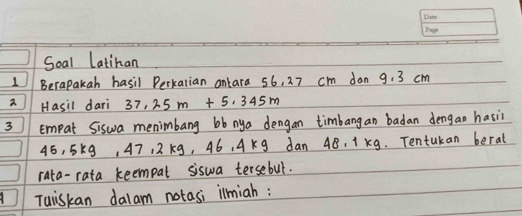 Date:
Page
Soal Latihan
1 Berapakah hasil Perkalian antara 56,27 cm dan 9.3 cm
2 Hasil dari 37,25 m + 5.345m
3 empat siswa menimbang bb nya dengan timbangan badan dengan hasil
45,5kg , 47,2 kg, 46,4 kg dan 48,1 kg. Tentukan berat
rata-rata keempat siswa tersebut.
Tuliskan dalam notasi ilmiah :